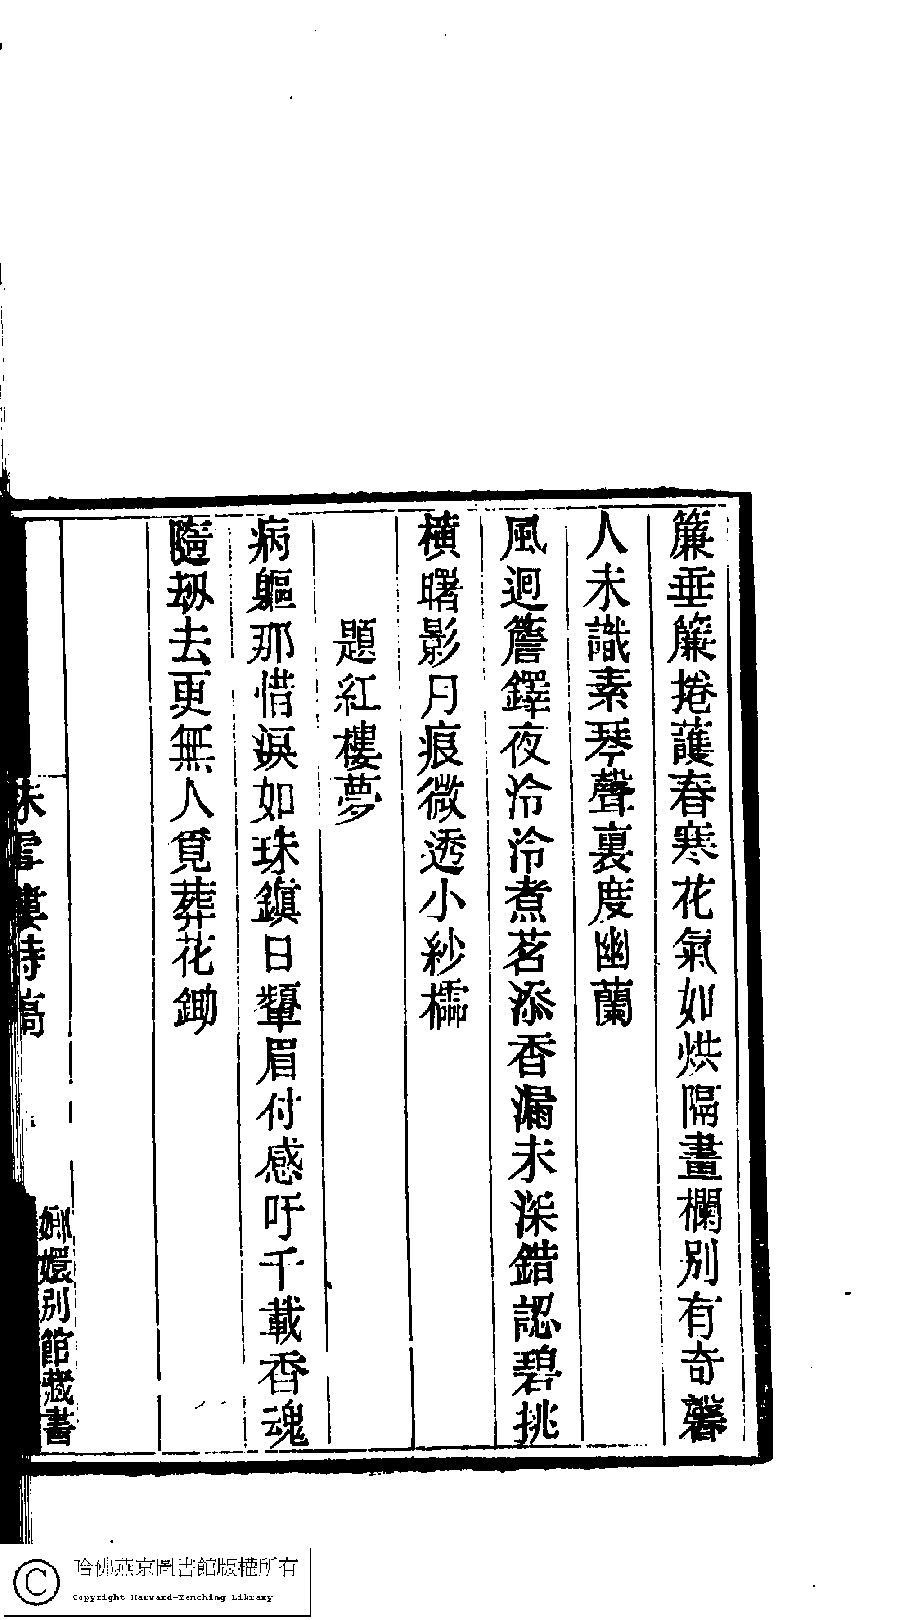 簾垂簾捲護春寒花氣如烘隔畫欄別有奇馨
人未識素琴聲裏度幽蘭
風迴簷鐸夜泠泠煮茗添香漏未深錯認碧挑
橫曙影月痕微透小紗櫺
題紅樓夢
病軀那惜淚如珠鎮日顰眉付感吁千載香魂
隨劫去更無人覓葬花鋤
樓詩稿
嫏嬛別館藏書
哈佛燕京圖書館版權所有
Copyright Harvard-Yenching Library